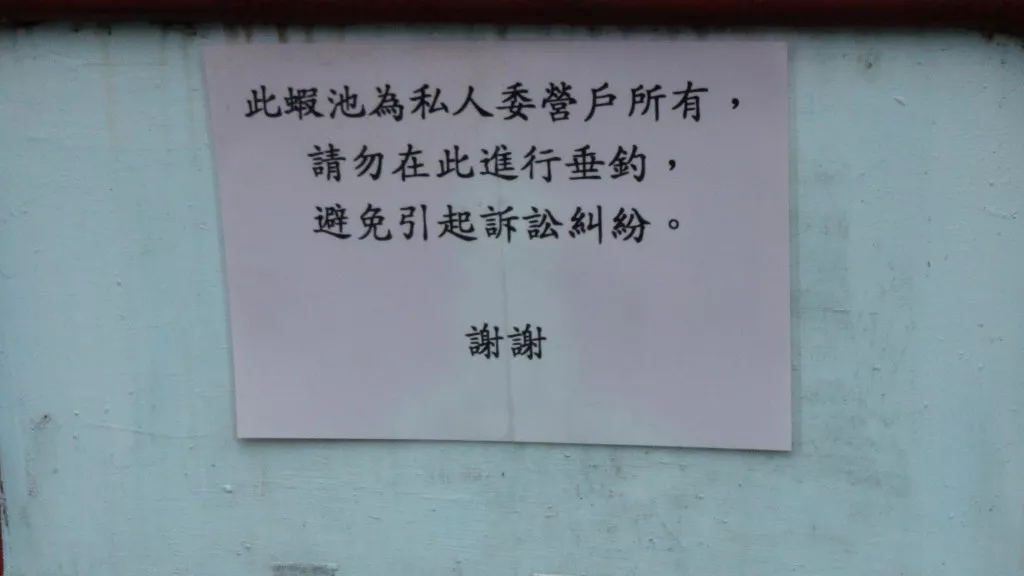 此蝦池為私人委營戶所有，
請勿在此進行垂釣，
避免引起訴訟糾紛。
謝謝